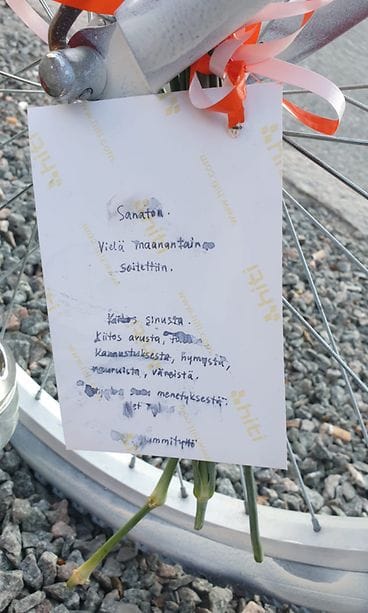 Sanaton.
Vielä maanantain
soitettiin.
Kiitos sinusta.
Kiitos avusta,
Kannustuksesta, hymystä,
nauruista, väreistä.
menetyksestä.
kummityttö
hiti
www.hiti.com